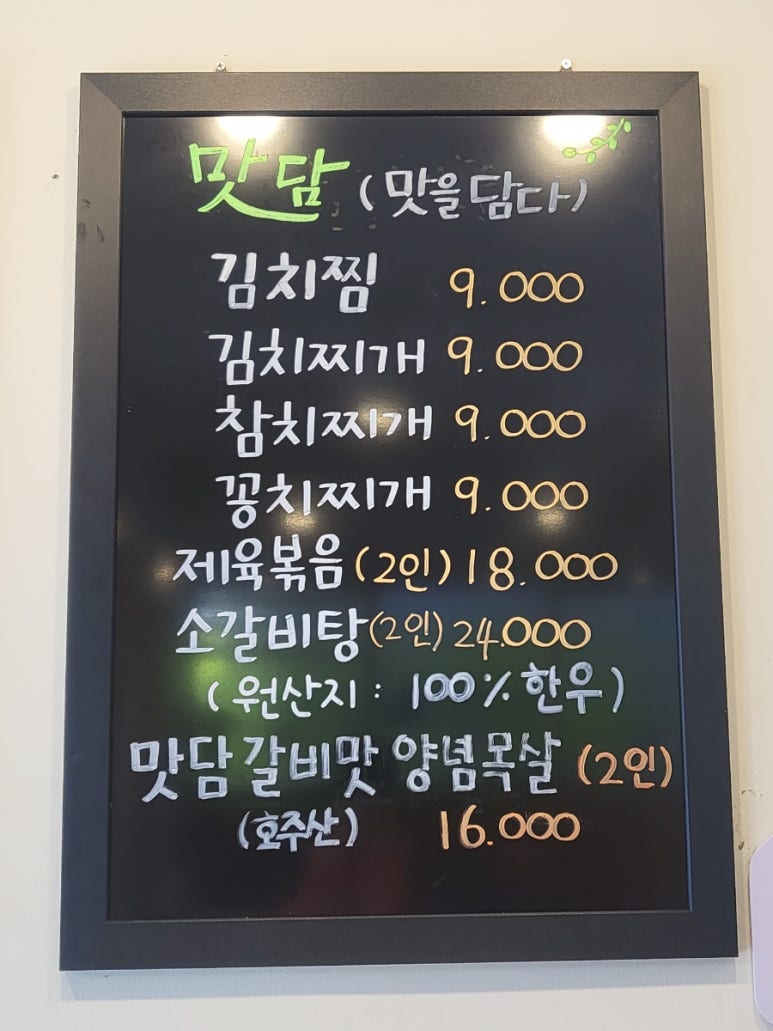 맛담 (맛을담다)
김치찜 9.000
김치찌개 9.000
참치찌개 9.000
꽁치찌개 9.000
제육볶음(2인) 18.000
소갈비탕(2인) 24.000
(원산지: 100% 한우)
맛담갈비맛 양념목살 (2인)
(호주산) 16.000